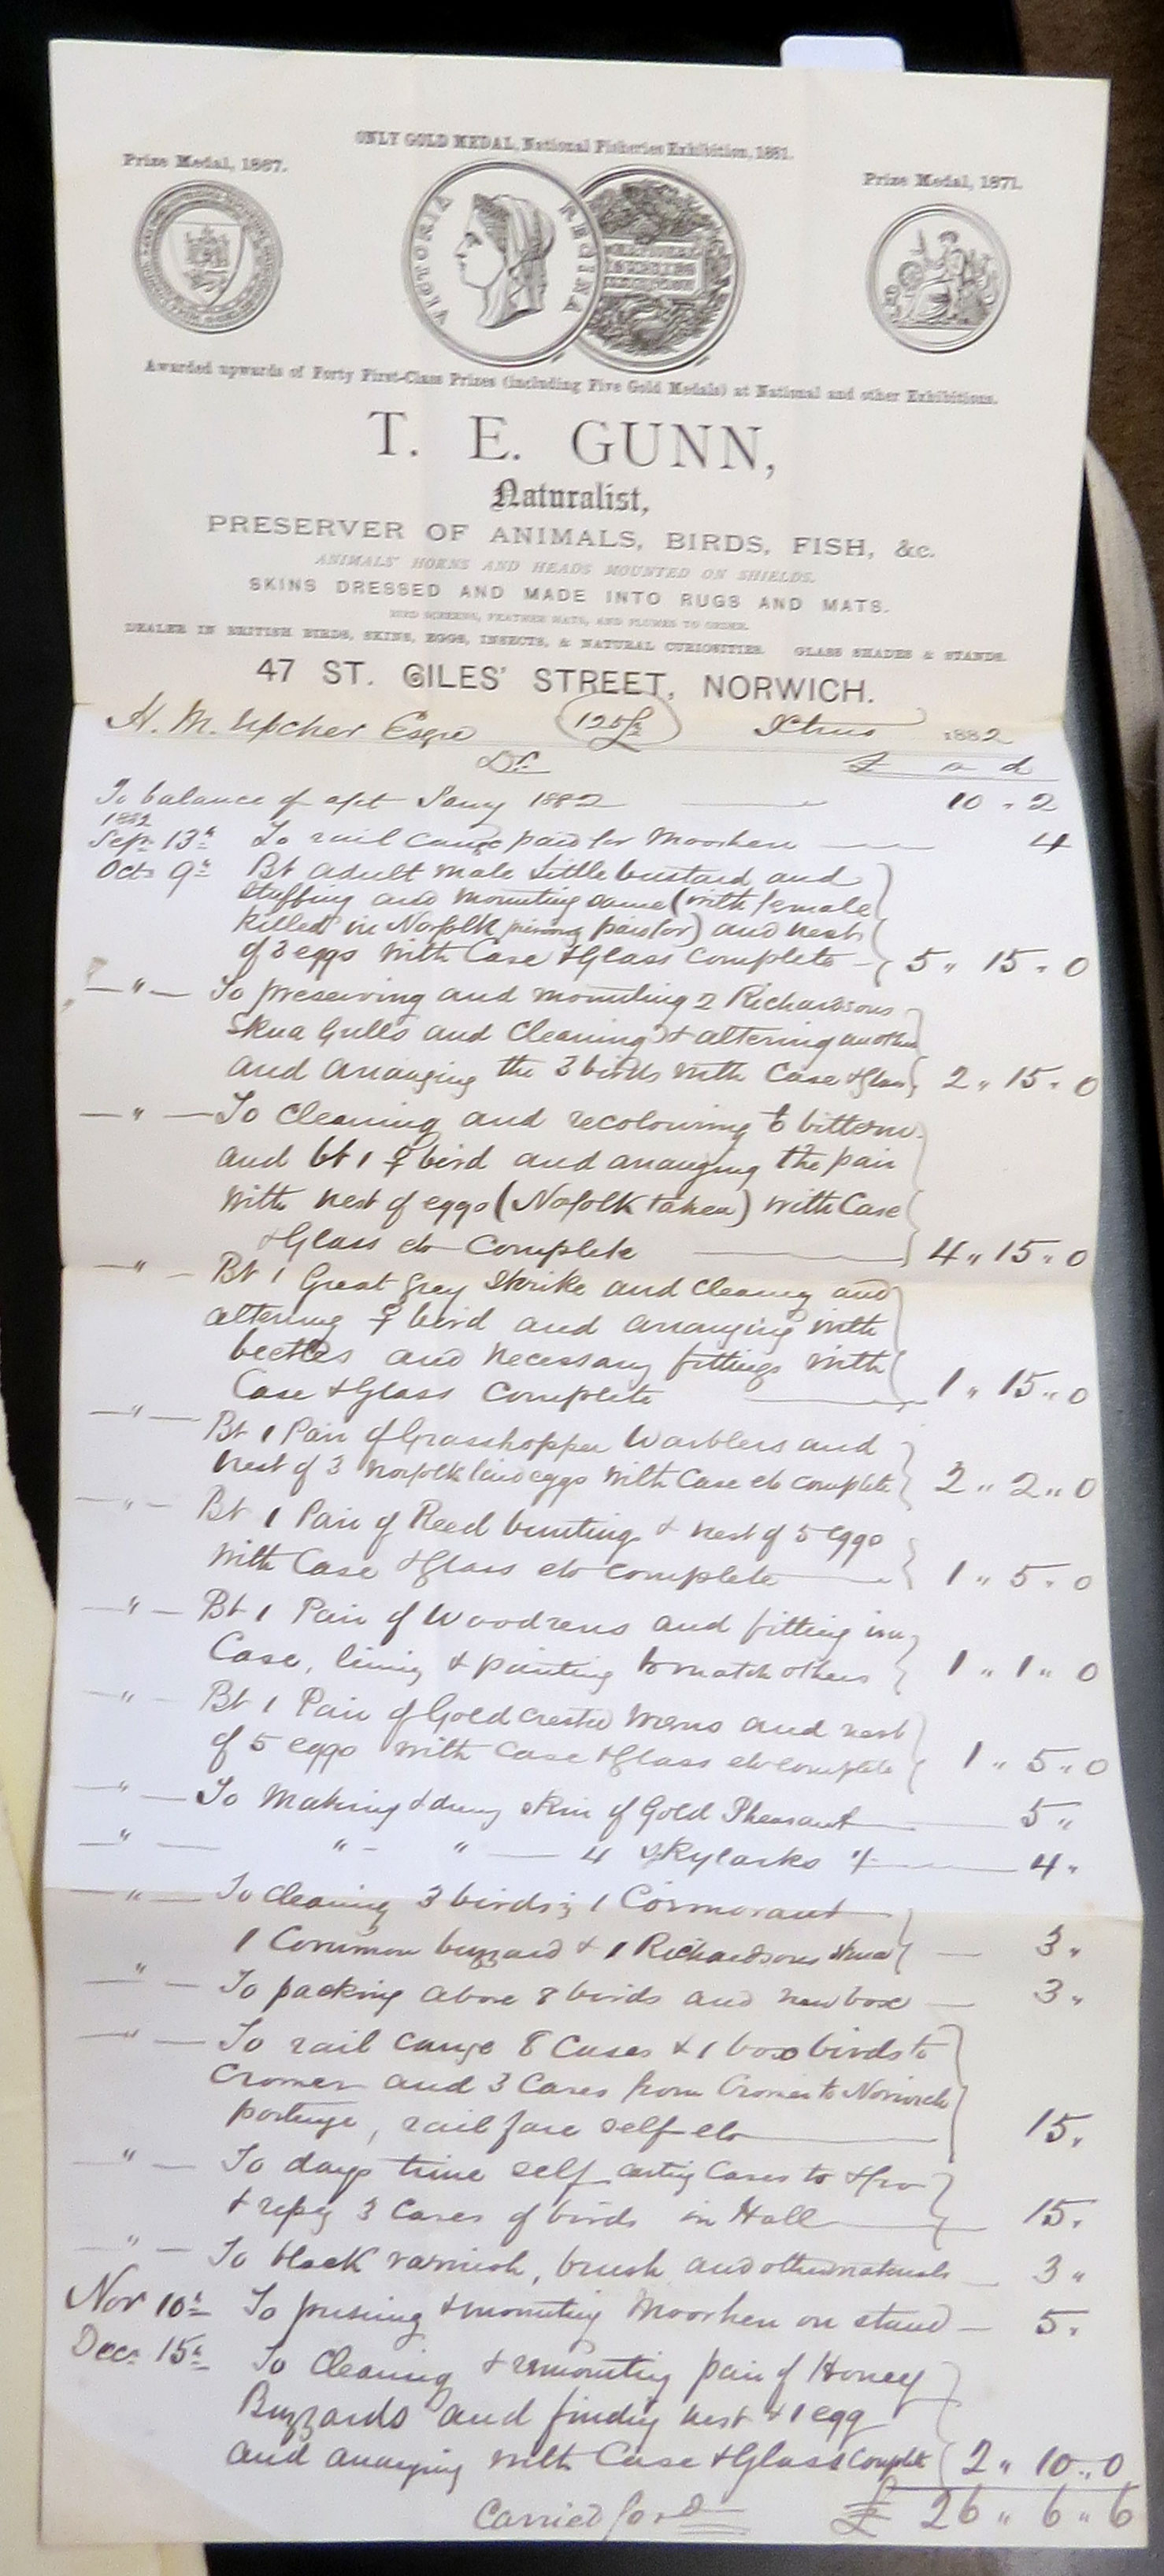 ONLY GOLD MEDAL, National Fisheries Exhibition, 1881.
Prize Medal, 1867.
Prize Medal, 1871.
VICTORIA REGINA
Awarded upwards of Forty First-Class Prizes (including Five Gold Medals) at National and other Exhibitions.
T. E. GUNN,
Naturalist,
PRESERVER OF ANIMALS, BIRDS, FISH, &c.
ANIMALS' HORNS AND HEADS MOUNTED ON SHIELDS.
SKINS DRESSED AND MADE INTO RUGS AND MATS.
BIRD SCREENS, FEATHER MATS, AND PLUMES TO ORDER.
DEALER IN BRITISH BIRDS, SKINS, EGGS, INSECTS, & NATURAL CURIOSITIES. GLASS SHADES & STANDS.
47 ST. GILES' STREET, NORWICH.
H. M. Upcher Esqre 125 Xtmas 1882
Dr £ s d
To balance of a/ct Jany 1882 10 " 2
1882
Sepr 13th To rail carrge paid for Moorhen 4
Octr 9th Bt adult male Little bustard and
stuffing and mounting same (with female
killed in Norfolk paid for) and nest
of 3 eggs with Case & Glass complete 5 " 15 " 0
" To preserving and mounting 2 Richardsons
Skua Gulls and cleaning & altering another
and arranging the 3 birds with Case & Glass 2 " 15 " 0
" To cleaning and recolouring bittern
and bt 1 ♀ bird and arranging the pair
with nest of eggs (Norfolk taken) with Case
& Glass etc Complete 4 " 15 " 0
" Bt 1 Great grey Shrike and cleaning and
altering ♀ bird and arranging with
beetles and necessary fittings with
Case & Glass complete 1 " 15 " 0
" Bt 1 Pair of Grasshopper Warblers and
nest of 3 Norfolk laid eggs with Case etc complete 2 " 2 " 0
" Bt 1 Pair of Reed bunting & nest of 5 eggs
with Case & glass etc complete 1 " 5 " 0
" Bt 1 Pair of Woodwrens and fitting in
Case, lining & painting to match others 1 " 1 " 0
" Bt 1 Pair of Gold crested wrens and nest
of 5 eggs with Case & Glass etc complete 1 " 5 " 0
" To making & drsng skin of Gold Pheasant 5 "
" " " 4 Skylarks 1/- 4 "
" To cleaning 3 birds; 1 Cormorant
1 Common buzzard & 1 Richardsons skua 3 "
" To packing above 8 birds and new box 3 "
" To rail carrge 8 Cases & 1 box birds to
Cromer and 3 Cases from Cromer to Norwich
porterage, rail fare self etc 15 "
" To days time self Cases to & fro
& repg 3 Cases of birds in Hall 15 "
" To black varnish, brush and other materials 3 "
Nov 10th To presving & mounting Moorhen on stand 5 "
Decr 15th To cleaning & remounting pair of Honey
Buzzards and finding nest & 1 egg
and arranging with Case & Glass Complete 2 " 10 " 0
Carried ford £ 26 " 6 " 6